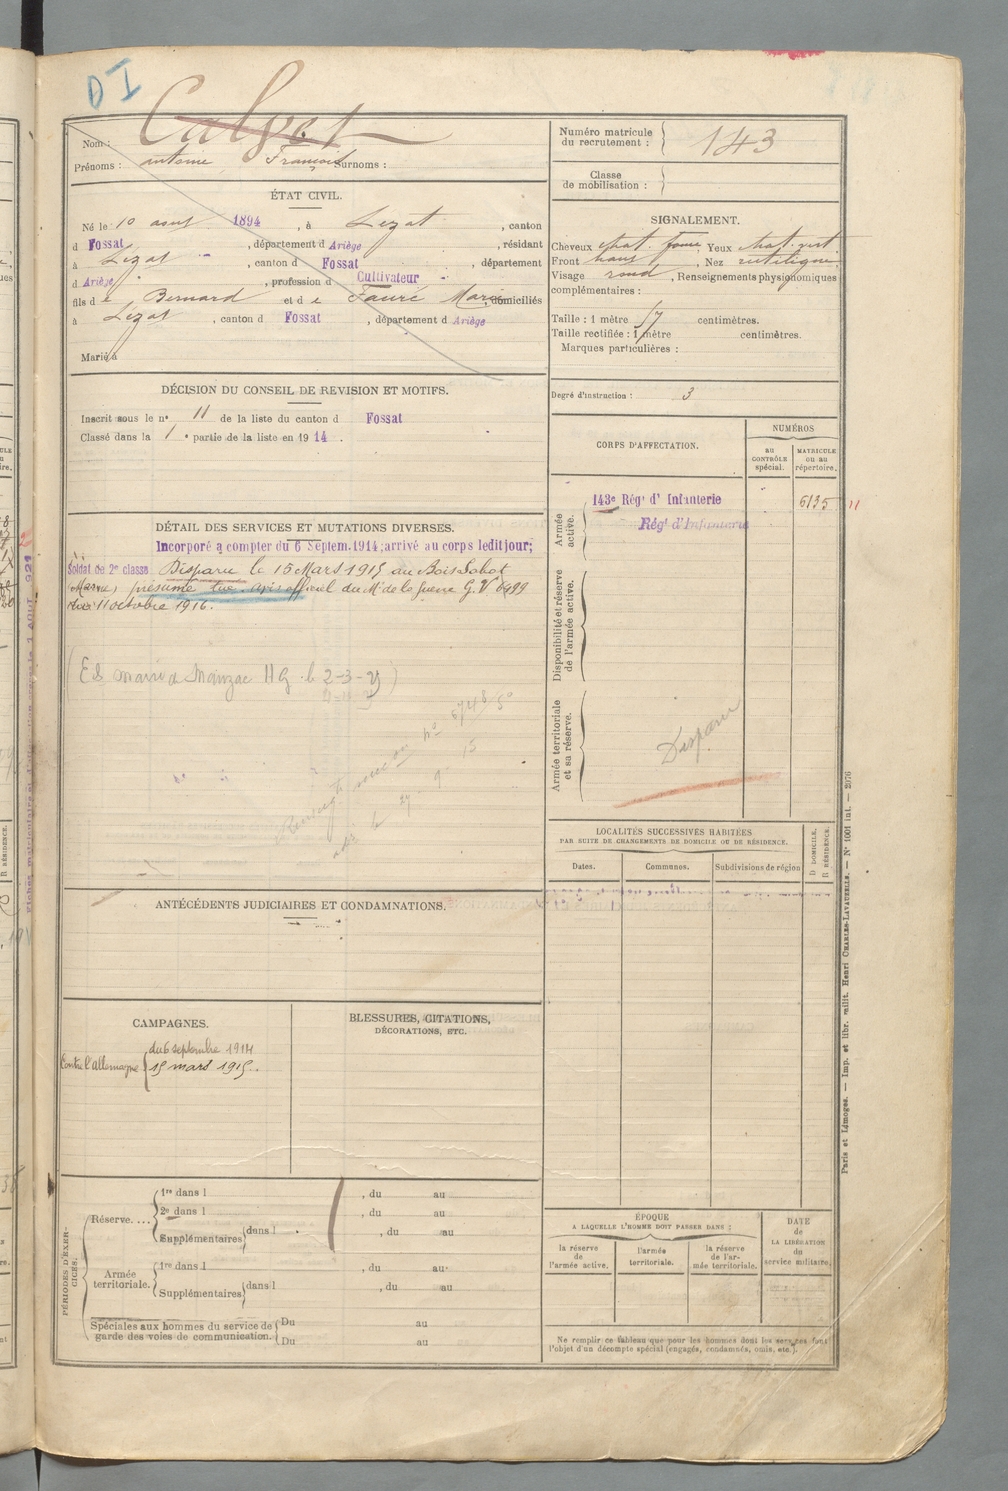 D I
Calvet
Nom :
Prénoms : antoine François Surnoms :
Numéro matricule du recrutement : 143
Classe de mobilisation :
ÉTAT CIVIL.
Né le 10 aout 1894, à Lezat, canton
d Fossat, département d Ariège, résidant
à Lezat, canton d Fossat, département
d Ariège, profession d Cultivateur
fils d e Bernard et d e Fauré Marie, domiciliés
à Lezat, canton d Fossat, département d Ariège
Marié à
SIGNALEMENT.
Cheveux chat. foncé Yeux chat. vert
Front haut, Nez rectiligne
Visage rond, Renseignements physionomiques
complémentaires :
Taille : 1 mètre 57 centimètres.
Taille rectifiée : 1 mètre centimètres.
Marques particulières :
Degré d'instruction : 3
DÉCISION DU CONSEIL DE REVISION ET MOTIFS.
Inscrit sous le n° 11 de la liste du canton d Fossat
Classé dans la 1e partie de la liste en 1914.
CORPS D'AFFECTATION.
NUMÉROS
AU CONTRÔLE spécial.
MATRICULE ou au répertoire.
Armée active.
143e Régt d' Infanterie 6135 11
Régt d'Infanterie
Disponibilité et réserve de l'armée active.
Armée territoriale et sa réserve.
Disparu
DÉTAIL DES SERVICES ET MUTATIONS DIVERSES.
Incorporé à compter du 6 Septem. 1914; arrivé au corps ledit jour;
Soldat de 2e classe. Disparu le 15 Mars 1915 au Bois Sabot
(Marne) présumé tué. avis officiel du Me de la guerre G.V 6999
du 11 octobre 1916.
n° 5748
27 9 15
LOCALITÉS SUCCESSIVES HABITÉES
PAR SUITE DE CHANGEMENTS DE DOMICILE OU DE RÉSIDENCE.
Dates.
Communes.
Subdivisions de région
D DOMICILE.
R RÉSIDENCE.
ANTÉCÉDENTS JUDICIAIRES ET CONDAMNATIONS.
CAMPAGNES.
Contre l'allemagne du 6 septembre 1914
15 mars 1915.
BLESSURES, CITATIONS,
DÉCORATIONS, ETC.
PÉRIODES D'EXERCICES.
Réserve....
1re dans l , du au
2e dans l , du au
Supplémentaires dans l , du au
Armée territoriale.
1re dans l , du au
Supplémentaires dans l , du au
Spéciales aux hommes du service de garde des voies de communication.
Du au
Du au
ÉPOQUE
A LAQUELLE L'HOMME DOIT PASSER DANS :
la réserve de l'armée active.
l'armée territoriale.
la réserve de l'armée territoriale.
DATE de LA LIBÉRATION du service militaire.
Ne remplir ce tableau que pour les hommes dont les services font
l'objet d'un décompte spécial (engagés, condamnés, omis, etc.).
Paris et Limoges. — Imp. et libr. milit. Henri CHARLES-LAVAUZELLE. — N° 1001 int. — 2976